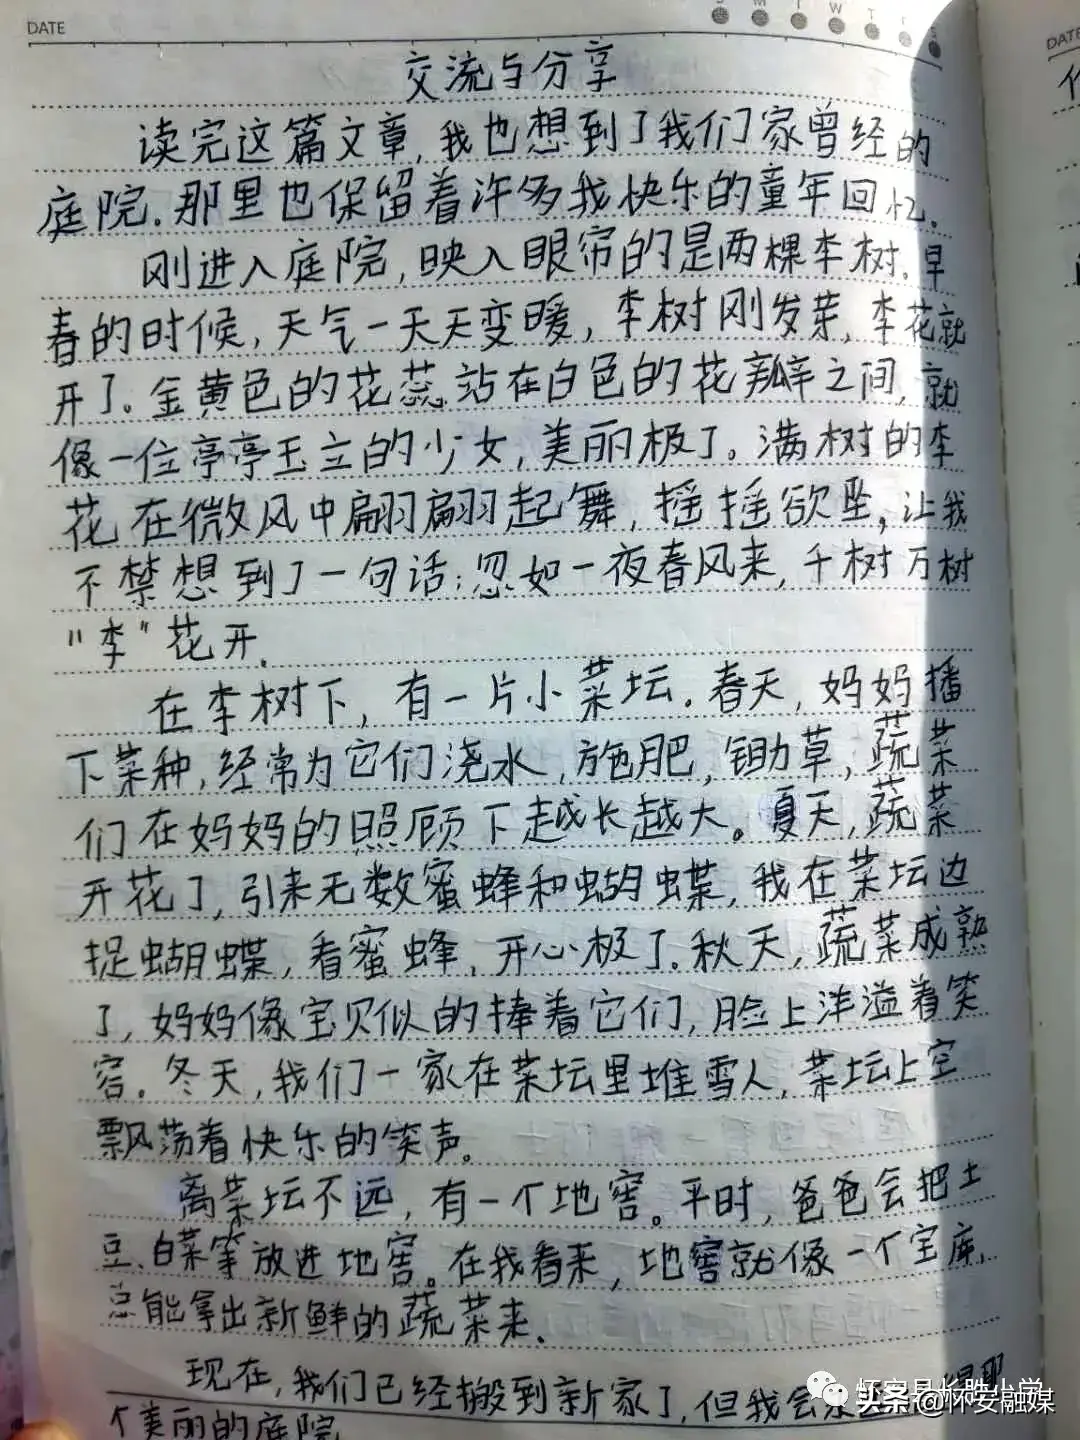 DATE
S M T W T F S
DATE
交流与分享
读完这篇文章,我也想到了我们家曾经的
庭院.那里也保留着许多我快乐的童年回忆.
刚进入庭院,映入眼帘的是两棵李树.早
春的时候,天气一天天变暖,李树刚发芽,李花就
开了。金黄色的花蕊站在白色的花瓣之间,就
像一位亭亭玉立的少女,美丽极了。满树的李
花在微风中翩翩起舞,摇摇欲坠,让我
不禁想到了一句话:忽如一夜春风来,千树万树
"李"花开.
在李树下,有一片小菜坛.春天,妈妈播
下菜种,经常为它们浇水,施肥,锄草,蔬菜
们在妈妈的照顾下越长越大。夏天,蔬菜
开花了,引来无数蜜蜂和蝴蝶,我在菜坛边
捉蝴蝶,看蜜蜂,开心极了.秋天,蔬菜成熟
了,妈妈像宝贝似的捧着它们,脸上洋溢着笑
容。冬天,我们一家在菜坛里堆雪人,菜坛上空
飘荡着快乐的笑声。
离菜坛不远,有一个地窖。平时,爸爸会把土
豆、白菜等放进地窖。在我看来,地窖就像一个宝库,
总能拿出新鲜的蔬菜来.
现在,我们已经搬到新家了,但我会
个美丽的庭院
怀安县长胜小学
头条@怀安融媒